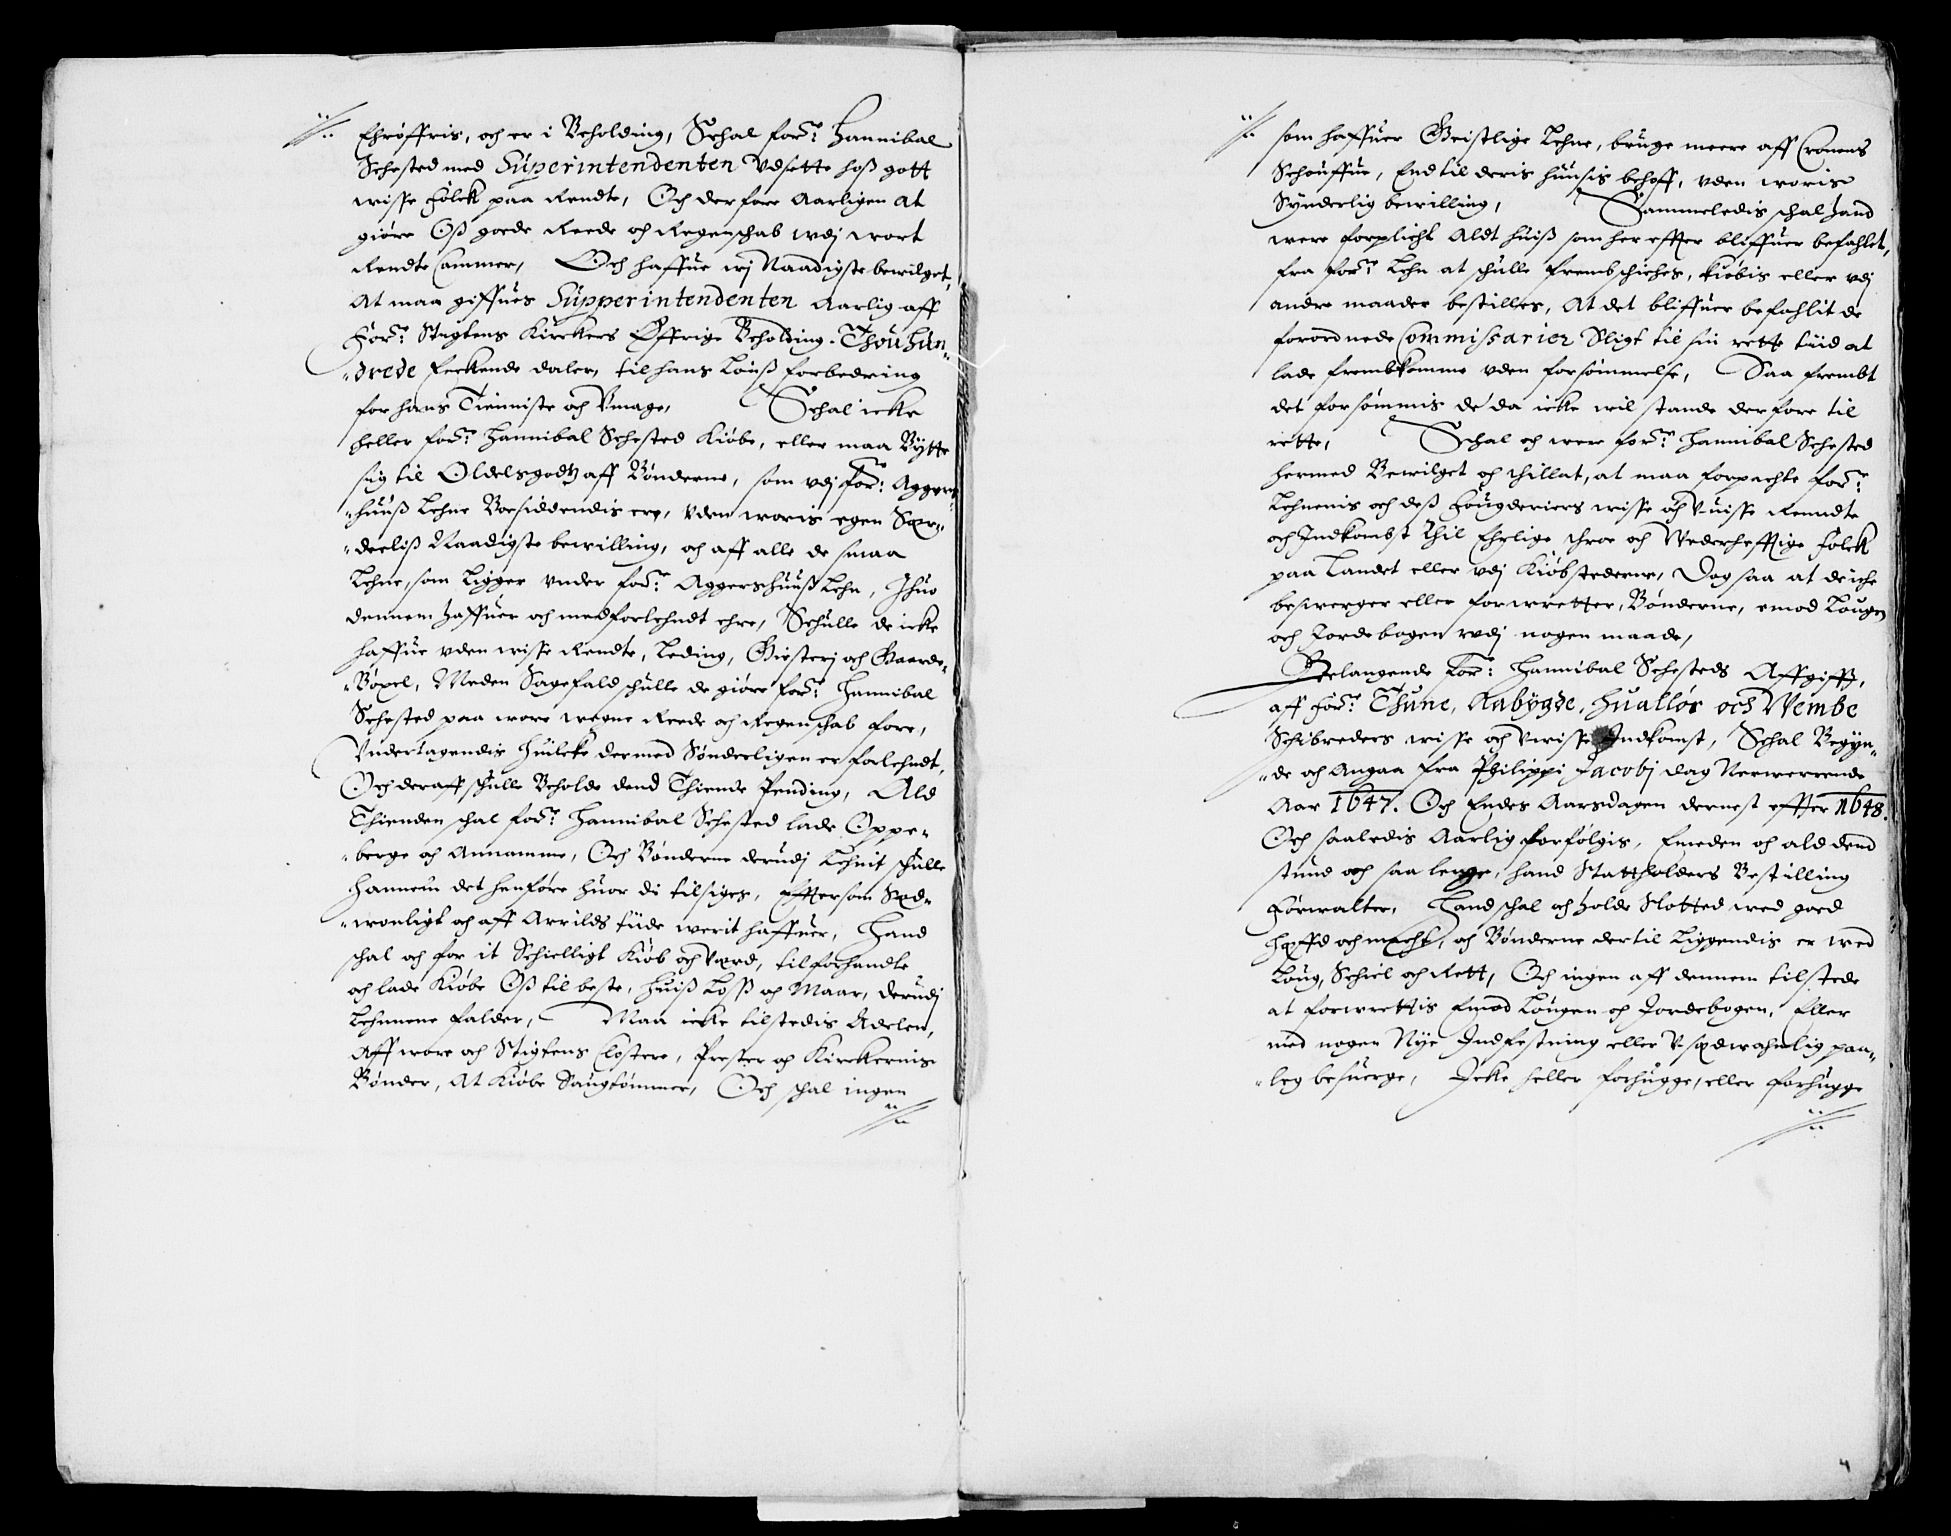 Ehröffris, och er i Beholding, Schal for.ne Hannibal
Sehested med Superintendenten Udsette hoß gott
wisse Folck paa Rendte, Och derfore Aarligen at
giöre Oß goede Reede och Regenschab wdj wort
Rendte Cammer, Och haffue wj Naadigste bewilget,
At maa giffues Supperintendenten Aarlig aff
For.ne Stigtens Kirckers Öffrige Beholding. Thouhun„
„drede Sectende daler, til hans Lönß forbedring
for hans Tienniste och Umage, Schal icke
heller for.ne Hannibal Sehested Kiöbe, eller maa Bytte
sig til Odelsgodtz aff Bönderne, som vdj for.ne Aggers„
„huuß Lehne Boesiddendis ere, Uden woris egen Sær„
„deeliß Naadigste bewilling, och aff alle de smaa
Lehne, som Ligger vnder for.ne Aggershuuß Lehn, Ihuo
dennem haffuer och med forlehndt ehre, Schulle de icke
haffue vden wisse Rendte, Leding, Giesterj och Gaarde„
„Böxel, Meden Sagefald schulle de giöre for.ne Hannibal
Sehested paa wore wegne Reede och Regenschab fore,
Undertagendis huilcke dermed Sönderligen er forlehndt,
Och deraff schulle Beholde dend Thiende Pending, Ald
Thienden schal for.ne Hannibal Sehested lade Oppe„
„berge och Annamme, Och Bönderne derudj Lehnit schulle
hannem det henföre huor de tilsiges, efftersom Sæd„
„wonligt och aff Arrilds tiide werit haffuer, Hand
schal och for it Schielligt Kiöb och Værd, tilforhandle
och lade Kiöbe Oß til beste, huiß Loss och Maar, derudj
Lehnnene falder, Maa icke tilstedis Adelen,
Aff wore och Stigtens Closters, Prester och Kirckernis
Bönder, At Kiöbe Saugtömmer, Och schal ingen
som haffuer Geistlige Lehne, bruge meere aff Cronens
Schouffue, End til deris huusis behoff, vden woris
Synderlig bewilling, Sammeledis schal hand
were forplicht Aldt huiß som her effter bliffuer befahlet,
fra for.ne Lehn at schulle frembschiches, kiöbis eller vdj
andre maader bestilles, At det bliffuer befahlit de
forordnede Commissarier Sligt til sin rette tiid at
lade frembkomme vden forsömmelse, Saa frembt
det forsömmis de da icke wil stande derfore til
rette, Schal och were for.ne Hannibal Sehested
hermed Bewilget och thillat, at maa forpachte for.ne
Lehnenis och deß Fougderiers wisse och Uuisse Renndte
och Indkombst thil Ehrlige throe och Wederhefftige Folck
paa Landet eller vdj Kiöbstederne, Dog saa at de iche
beswerger eller forwretter, Bönderne, emod Lougen
och Jordebogen wdj nogen maade,
Belangende for.ne Hannibal Sehesteds Affgifft,
aff for.ne Thune, Aabygde, Hualløs och Wembe
Schibreders wisse och Uwisse Indkomst, Schal Begyn„
„de och Angaa fra Philippi Jacobj dag Nerwerrende
Aar 1647. Och Endes Aarsdagen dernest effter 1648.
Och saaledis Aarlig forfölgis, Emeden och ald dend
stund och saa lenge, hand Stattholders Bestilling
Forwalter, Hand schal och holde Slotted wed goed
Hæffd och macht, och Bönderne dertil Liggendis er wed
Loug, Schiel och Rett, Och ingen aff dennem tilstede
at forwrettis Emod Lougen och Jordebogen, Eller
med nogen Nye Indfestning eller Usædwahnlig paa„
„leg besuerge, Icke heller forhugge, eller forhugge